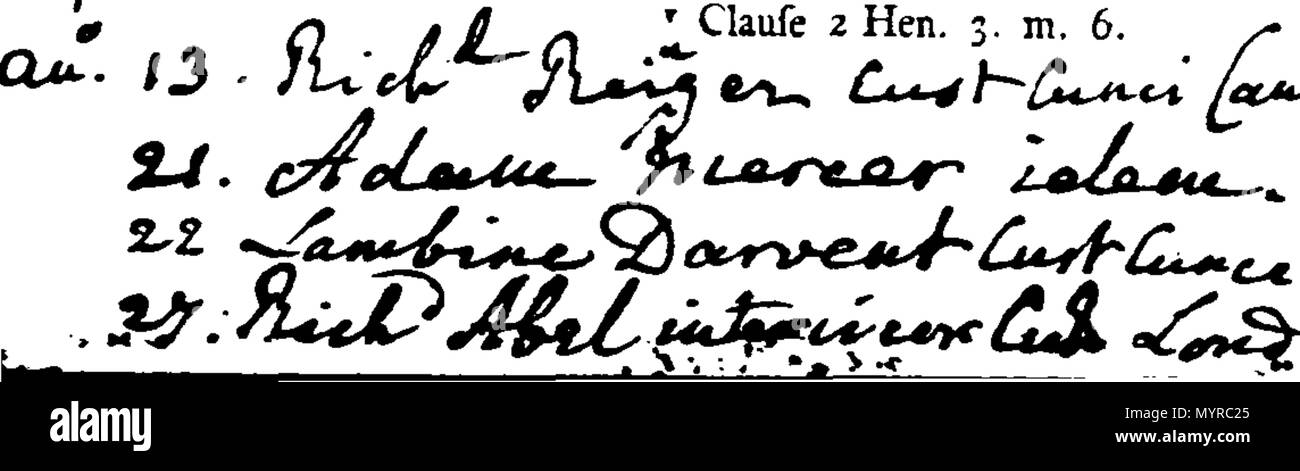 ʳ Clauſe 2 Hen. 3. m. 6.
ano. 13. Richd Reiger Cust Cunei Can
21. Adam Mercer idem.
22 Lambine Darvent Cust Cunei
27. Richd Abel inter Lond
alamy
Image ID: MYRC25
www.alamy.com